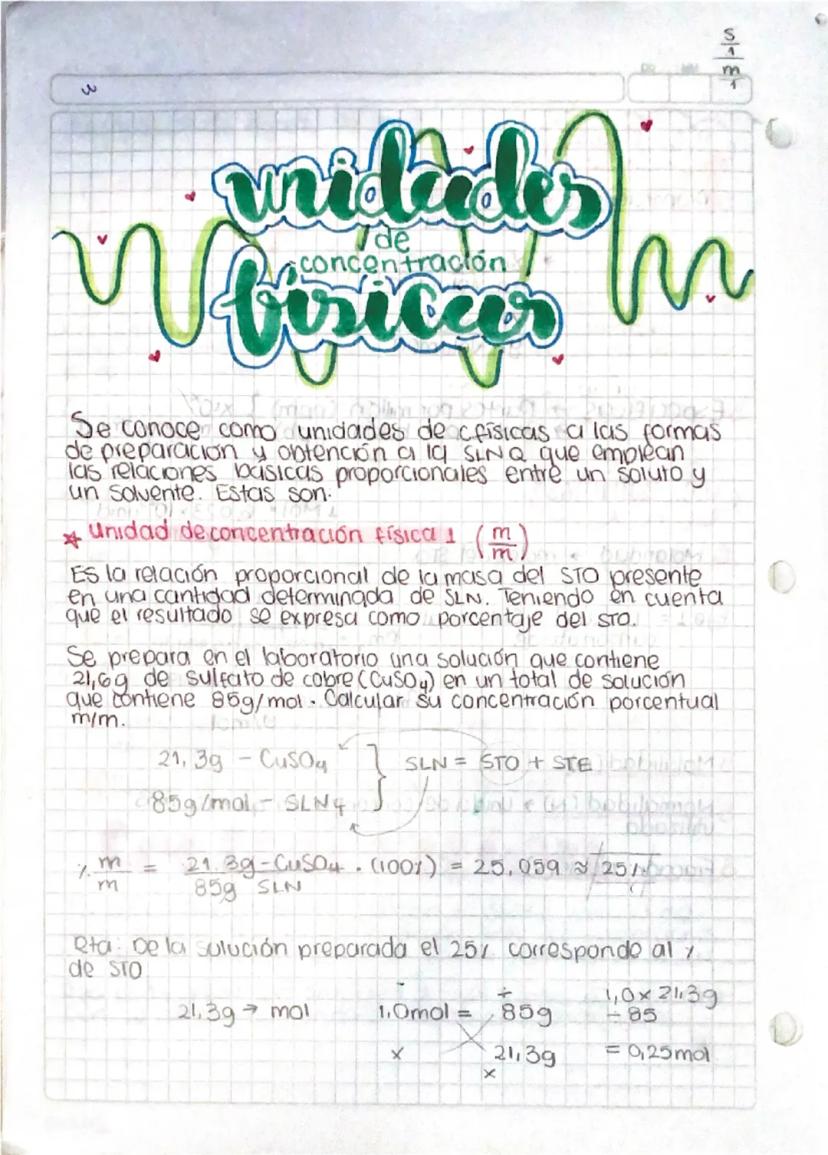 S/1
m/1
3
unidades
de
concentración
físicas
Se conoce como unidades de c físicas a las formas
de preparación y obtención a la SLNQ que emplean
las relaciones básicas proporcionales entre un soluto y
un solvente. Estas son.
* Unidad de concentración física 1 (m/m)
Es la relación proporcional de la masa del STO presente
en una cantidad determinada de SLN. Teniendo en cuenta
que el resultado se expresa como porcentaje del STO.
Se prepara en el laboratorio una solución que contiene
21,6g de sulfato de cobre (CuSO4) en un total de solución
que contiene 85g/mol. Calcular su concentración porcentual
m/m.
21,3g - CuSO4 } SLN = STO + STE
85g/mol - SLN
% m/m = 21.3g-CuSO4 / 85g SLN . (100%) = 25,059 ≈ 25%
Rta: De la solución preparada el 25% corresponde al %
de STO
21,3g → mol 1,0mol = 85g 1,0 x 21,3g ÷ 85
x 21,3g = 0,25mol